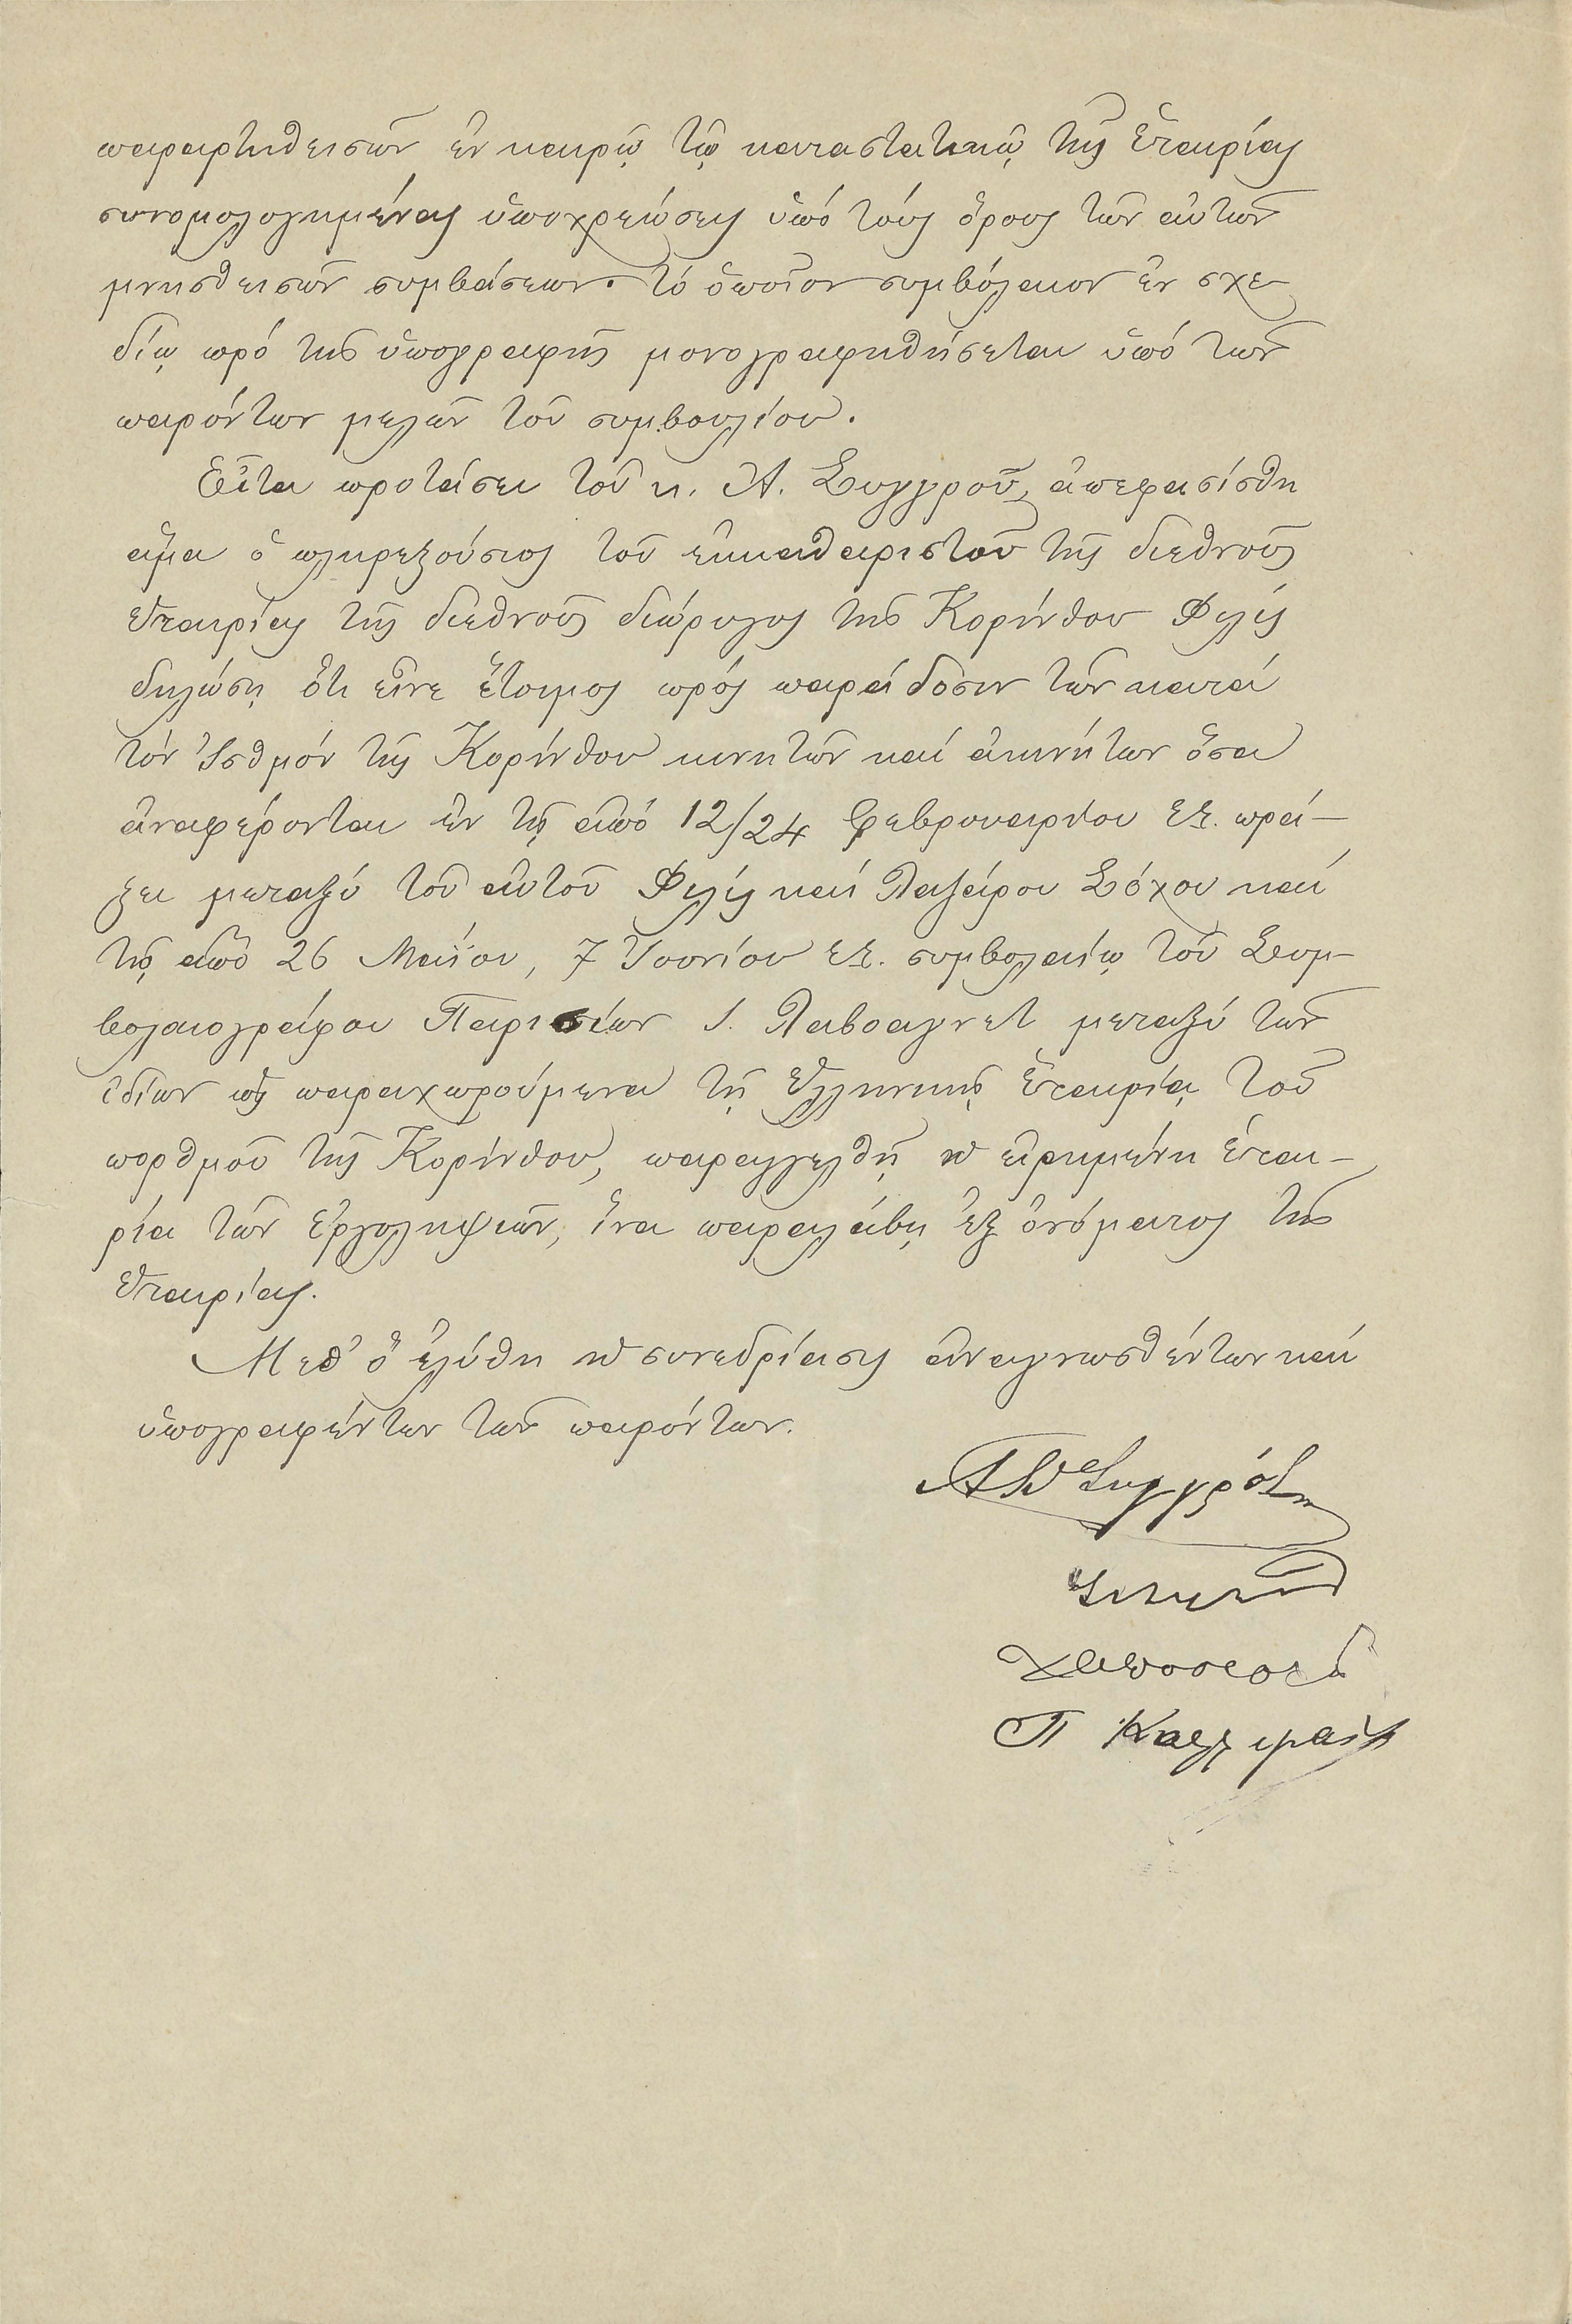 παραρτηθεισῶν ἐν καιρῷ τῷ καταστατικῷ τῆς Ἑταιρίας
συνομολογημένας ὑποχρεώσεις ὑπό τούς ὅρους τῶν αὐτῶν
μνησθεισῶν συμβάσεων. τό ὁποῖον συμβόλαιον ἐν σχε-
δίῳ πρό τῆς ὑπογραφῆς μονογραφηθήσεται ὑπό τῶν
παρόντων μελῶν τοῦ συμβουλίου.
Εἶτα προτάσει τοῦ κ. Α. Συγγροῦ, ἀπεφασίσθη
ἅμα ὁ πληρεξούσιος τοῦ ἐκκαθαριστοῦ τῆς διεθνοῦς
ἑταιρίας τῆς διεθνοῦς διώρυγος τῆς Κορίνθου Φιλίς
δηλώσῃ ὅτι εἶνε ἕτοιμος πρός παράδοσιν τῶν κατά
τόν Ἰσθμόν τῆς Κορίνθου κινητῶν καί ἀκινήτων ὅσα
ἀναφέρονται ἐν τῇ ἀπό 12/24 Φεβρουαρίου ἐ.ἔ. πρά-
ξει μεταξύ τοῦ αὐτοῦ Φιλίς καί Λαζάρου Σόχου καί
τῷ ἀπό 26 Μαΐου, 7 Ἰουνίου ἐ.ἔ. συμβολαίῳ τοῦ Συμ-
βολαιογράφου Παρισίων Ι. Λαβοαγνετ μεταξύ τῶν
ἰδίων ὡς παραχωρούμενα τῇ Ἑλληνικῇ Ἑταιρίᾳ τοῦ
πορθμοῦ τῆς Κορίνθου, παραγγελθῇ ἡ εἰρημένη ἑται-
ρία τῶν ἐργοληψιῶν, ἵνα παραλάβῃ ἐξ ὀνόματος τῆς
ἑταιρίας.
Μεθ' ὅ ἐλύθη ἡ συνεδρίασις ἀναγνωσθέντων καί
ὑπογραφέντων τῶν παρόντων.
Α Συγγρός
Π Καλλιγάς